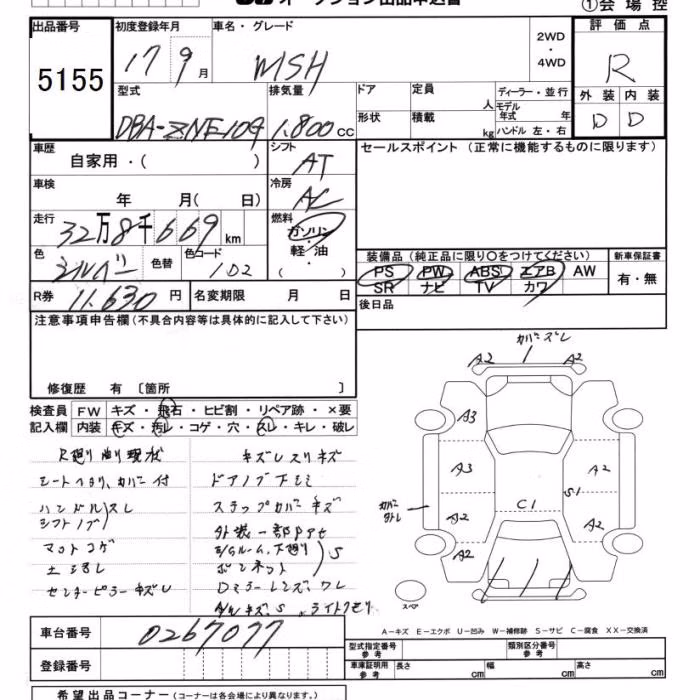 オークション出品申込書
①会場控
出品番号 5155
初度登録年月 17 9月
車名・グレード WISH
2WD・4WD
評価点 R
外装 D 内装 D
型式 DBA-ZNE10G
排気量 1,800cc
ドア
定員 人
形状
積載 kg
ディーラー・並行
モデル年式 年
ハンドル 左・右
車歴 自家用・( )
シフト AT
セールスポイント(正常に機能するものに限ります)
車検 年 月( 日)
冷房 AC
走行 32万8千669km
燃料 ガソリン・軽油・( )
色 シルバー
色替
色コード 1D2
装備品(純正品に限り○をつけてください)
PS PW ABS エアB AW
SR ナビ TV カワ
新車保証書 有・無
R券 11,630円
名変期限 月 日
後日品
注意事項申告欄(不具合内容等は具体的に記入して下さい)
修復歴 有〔箇所 〕
検査員記入欄
FW キズ・飛石・ヒビ割・リペア跡・×要
内装 キズ・汚レ・コゲ・穴・スレ・キレ・破レ
シート ヘタリ、カバー付
ハンドルスレ
シフトノブ
マットコゲ
センターピラーキズ
キズ
ステップカバーキズ
外装一部
S
ボンネット
カバーズレ
A2 A2
A3
A3 A2
S1
C1
A2 A2
A2
スペア
A-キズ E-エクボ U-凹み W-補修跡 S-サビ C-腐食 XX-交換済
車台番号 0267077
登録番号
型式指定番号 参考
類別区分番号 参考
車庫証明用 参考
長さ cm
幅 cm
高さ cm
希望出品コーナー(コーナーは各会場により異なります。)